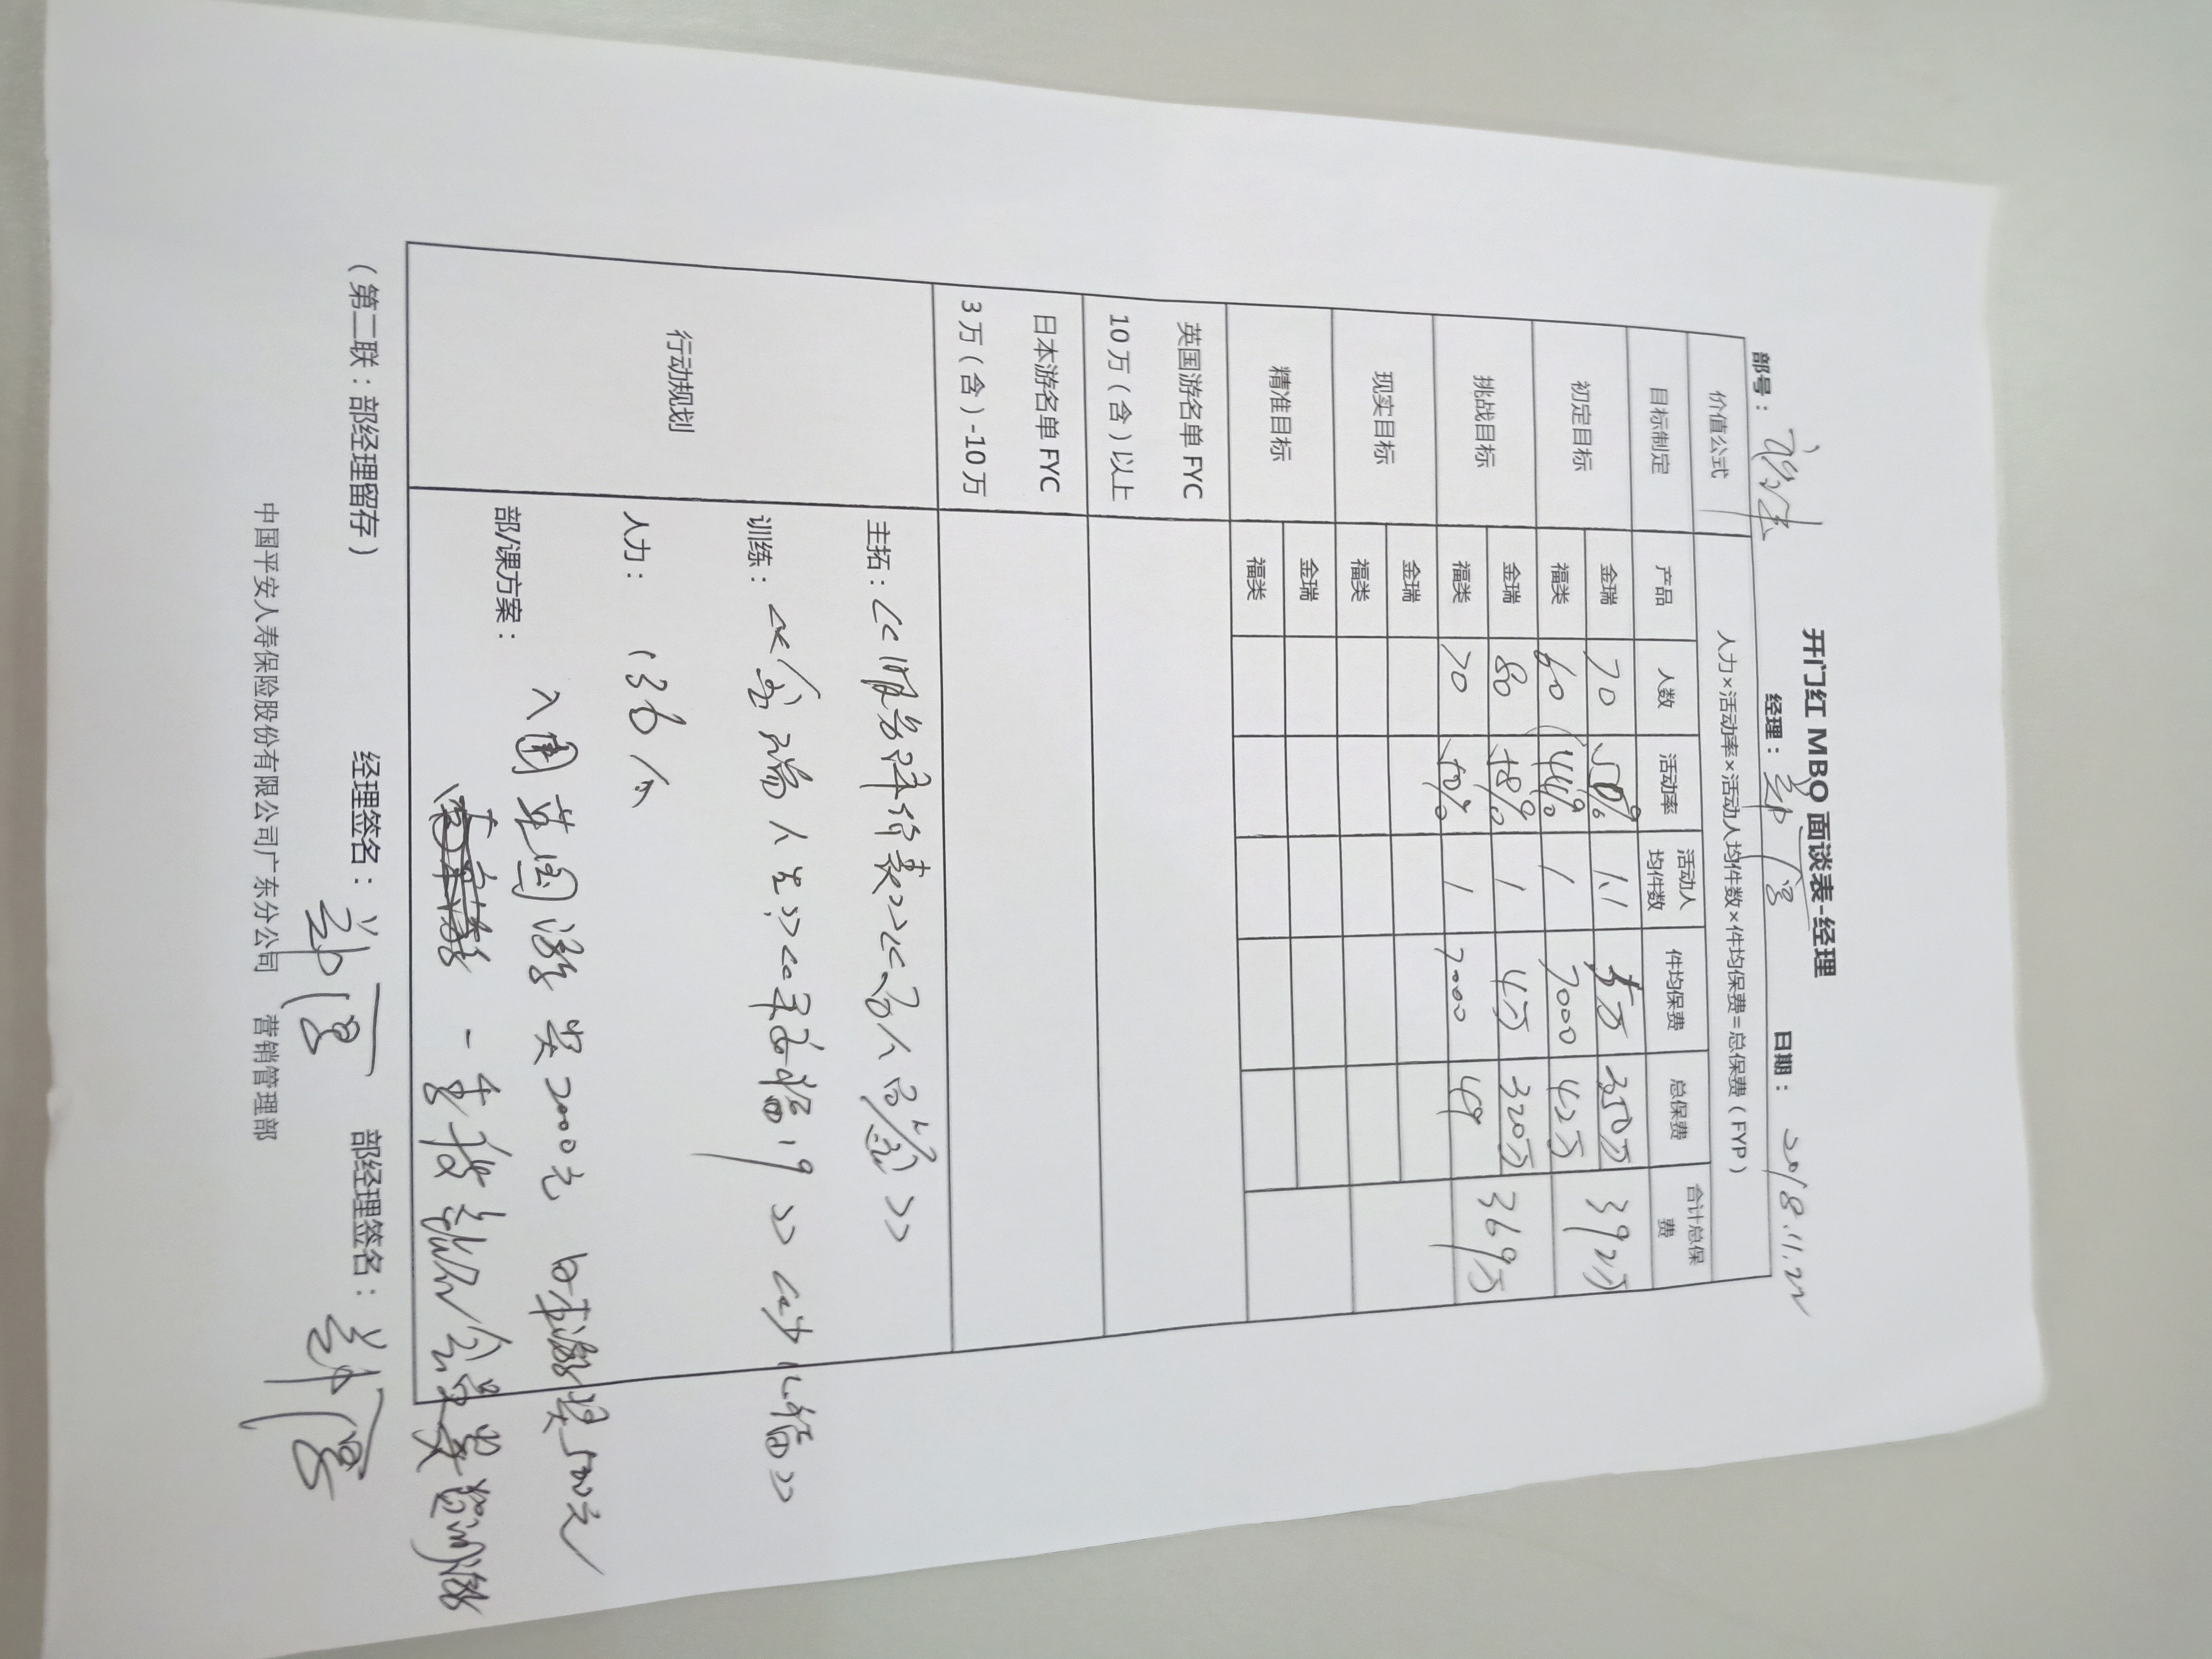 开门红 MBO 面谈表-经理
部号： 经理： 日期：2018.11.22
价值公式 人力×活动率×活动人均件数×件均保费=总保费（FYP）
目标制定 产品 人数 活动率 活动人均件数 件均保费 总保费 合计总保费
初定目标 金瑞 70 50% 1.1 5万 350万 392万
福类 60 44% 1 7000 42万
挑战目标 金瑞 80 58% 1 4万 320万 369万
福类 70 50% 1 7000 49
现实目标 金瑞
福类
精准目标 金瑞
福类
英国游名单 FYC
10 万（含）以上
日本游名单 FYC
3 万（含）-10 万
行动规划
主拓：<<服务评价表>><<万人 >>
训练：<<金瑞人生>><<平安福19>><<少儿福>>
人力：136人
部/课方案：
入围英国游奖2000元 日本游奖500元
（第二联：部经理留存） 经理签名： 部经理签名：
中国平安人寿保险股份有限公司广东分公司 营销管理部